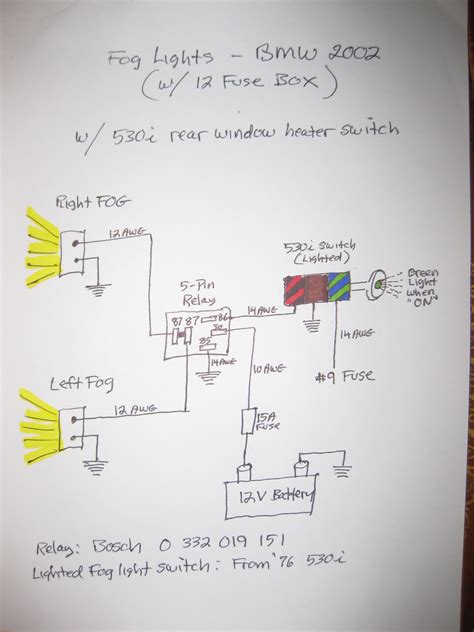 Fog Lights - BMW 2002
(w/ 12 Fuse Box)
w/ 530i rear window heater switch
Right FOG
12 AWG
530i Switch
(Lighted)
Green
Light
when
"ON"
5-Pin
Relay
14 AWG
87 87 86
30
85
14 AWG
14 AWG
#9 Fuse
10 AWG
Left Fog
12 AWG
15A
Fuse
12V Battery
Relay: Bosch 0 332 019 151
Lighted Fog light switch: From '76 530i